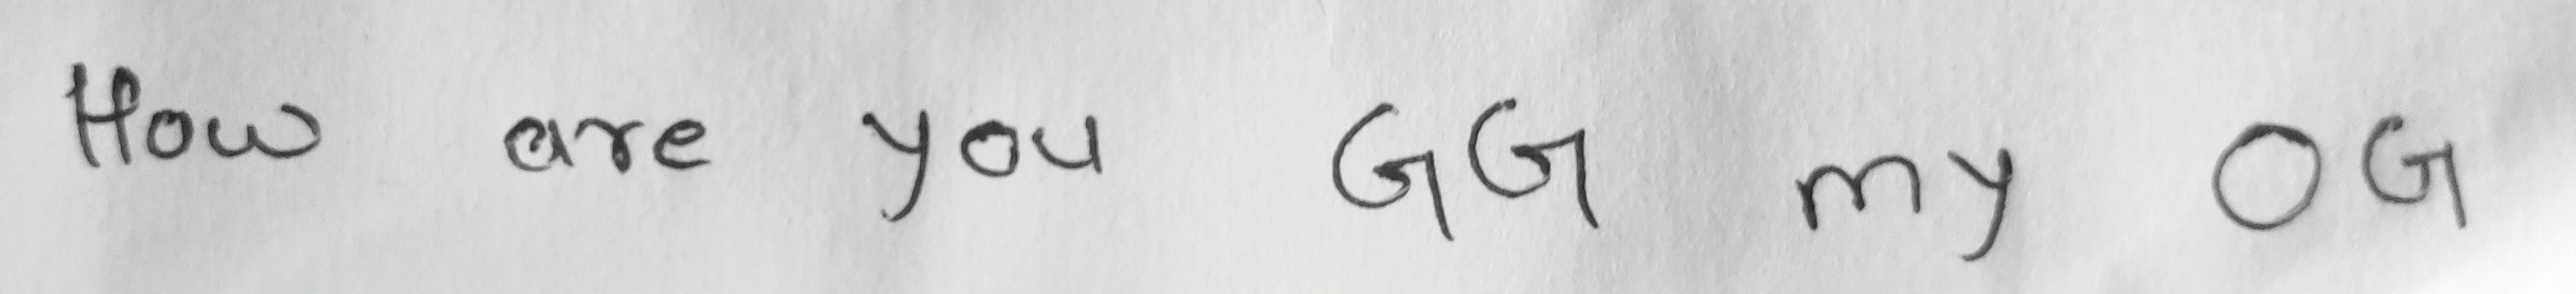 How are you GG my OG